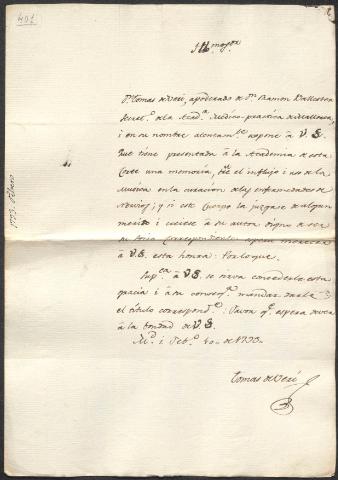 401
Ill.mo Sor
Dn. Tomas de Veri, apoderado de Dn. Ramon Ballester
Secret.o de la Acad.a Medico-practica de Mallorca,
i en su nombre atentam.te expone à V.S.
Que tiene presentada à la Academia de esta
Corte una memoria, sre el influjo i uso de la
Musica en la curacion de las enfermedades de
Nervios; y si este Cuerpo la juzgase de algun
merito i creiese à su autor digno de ser
su Socio Correspondiente espera merecer
à V.S. esta honra: Por lo que.
Sup.ca à V.S. se sirva concederle esta
gracia i à su conseq.a mandar darle
el título correspond.te: Favor q.e espera
à la bondad de V.S.
M.d i Feb.o de 1793.
Tomas de Veri
1793. Febrero